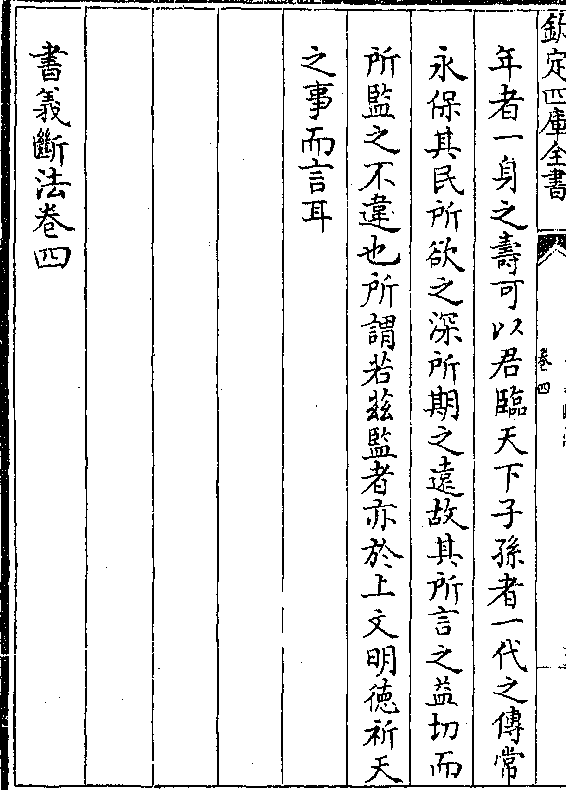 欽定四庫全書
卷四
年者一身之壽可以君臨天下子孫者一代之傳常
永保其民所欲之深所期之遠故其所言之益切而
所監之不違也所謂若兹監者亦於上文明德祈天
之事而言耳
書義斷法卷四